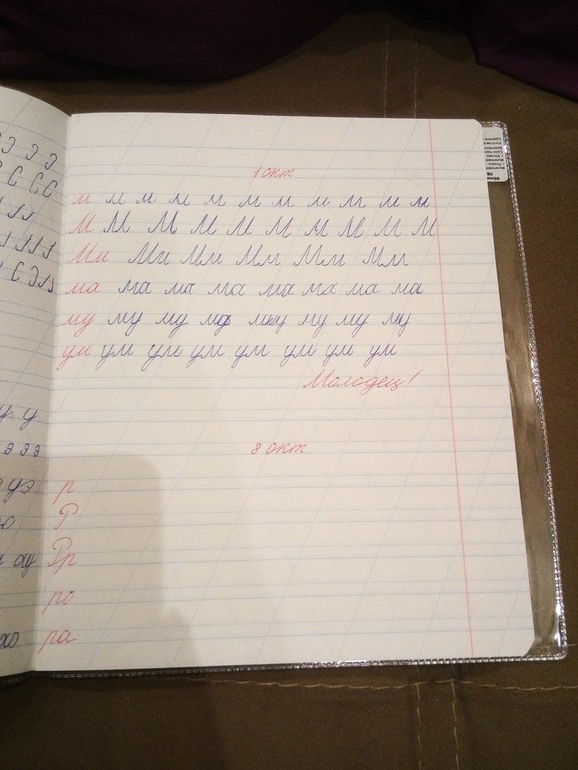 1 окт
м м м м м м м м м м м
М М М М М М М М М М М
Мм Мм Мм Мм Мм Мм
ма ма ма ма ма ма ма ма
му му му му му му му му
ум ум ум ум ум ум ум ум
Молодец!
8 окт
р
Р
Рр
ро
ра